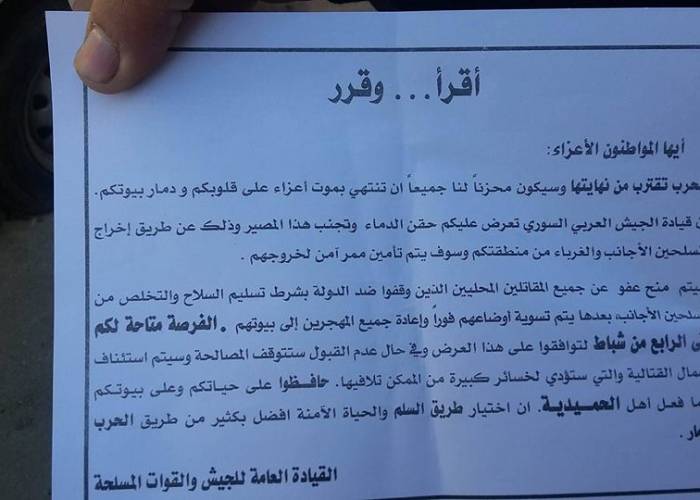 أقرأ... وقرر
أيها المواطنون الأعزاء:
لحرب تقترب من نهايتها وسيكون محزناً لنا جميعاً ان تنتهي بموت أعزاء على قلوبكم و دمار بيوتكم.
ن قيادة الجيش العربي السوري تعرض عليكم حقن الدماء وتجنب هذا المصير وذلك عن طريق إخراج
لمسلحين الأجانب والغرباء من منطقتكم وسوف يتم تأمين ممر آمن لخروجهم .
يتم منح عفو عن جميع المقاتلين المحليين الذين وقفوا ضد الدولة بشرط تسليم السلاح والتخلص من
لمسلحين الأجانب، بعدها يتم تسوية أوضاعهم فوراً وإعادة جميع المهجرين إلى بيوتهم . الفرصة متاحة لكم
ى الرابع من شباط لتوافقوا على هذا العرض وفي حال عدم القبول ستتوقف المصالحة وسيتم استئناف
مال القتالية والتي ستؤدي لخسائر كبيرة من الممكن تلافيها. حافظوا على حياتكم وعلى بيوتكم
ما فعل اهل الحميدية. ان اختيار طريق السلم والحياة الآمنة افضل بكثير من طريق الحرب
مار .
القيادة العامة للجيش والقوات المسلحة